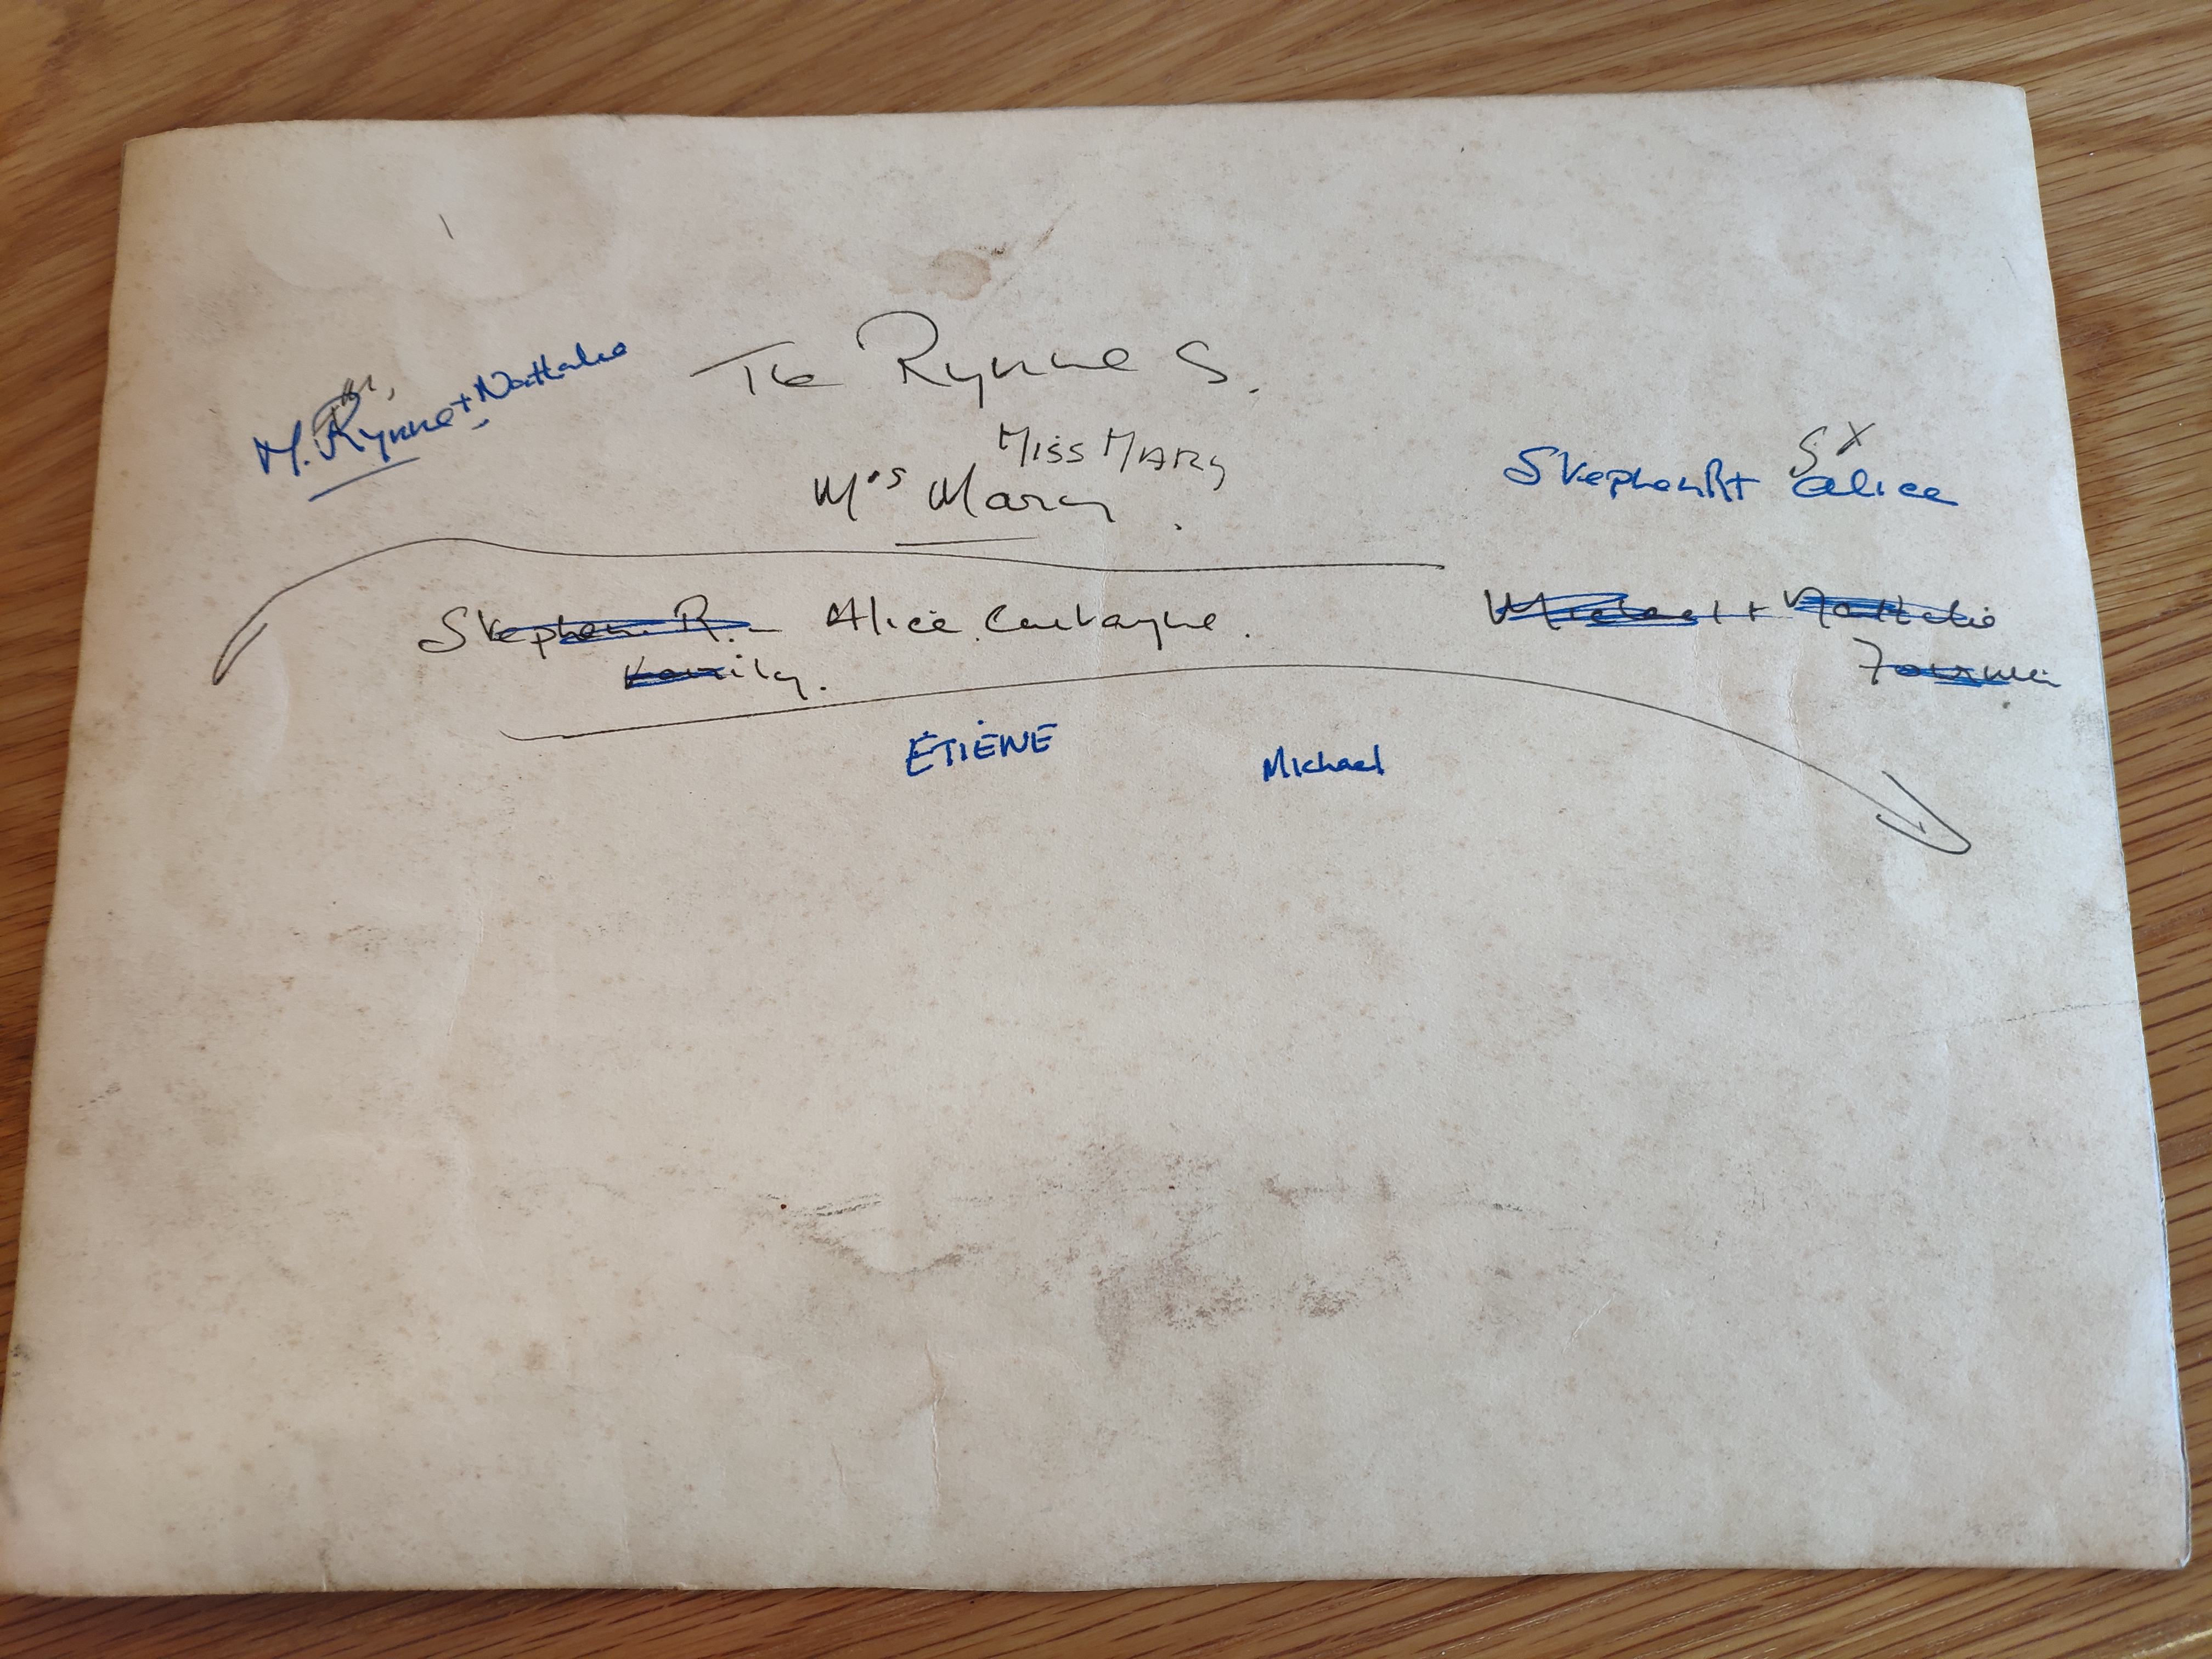 The Rynne S.
M. Rynne + Nathalie
MISS MARY
Mrs Mary.
Stephen R + Alice
Stephen R. - Alice Curtayne.
Family.
Michael + Nathalie
ÉTIENNE
Michael